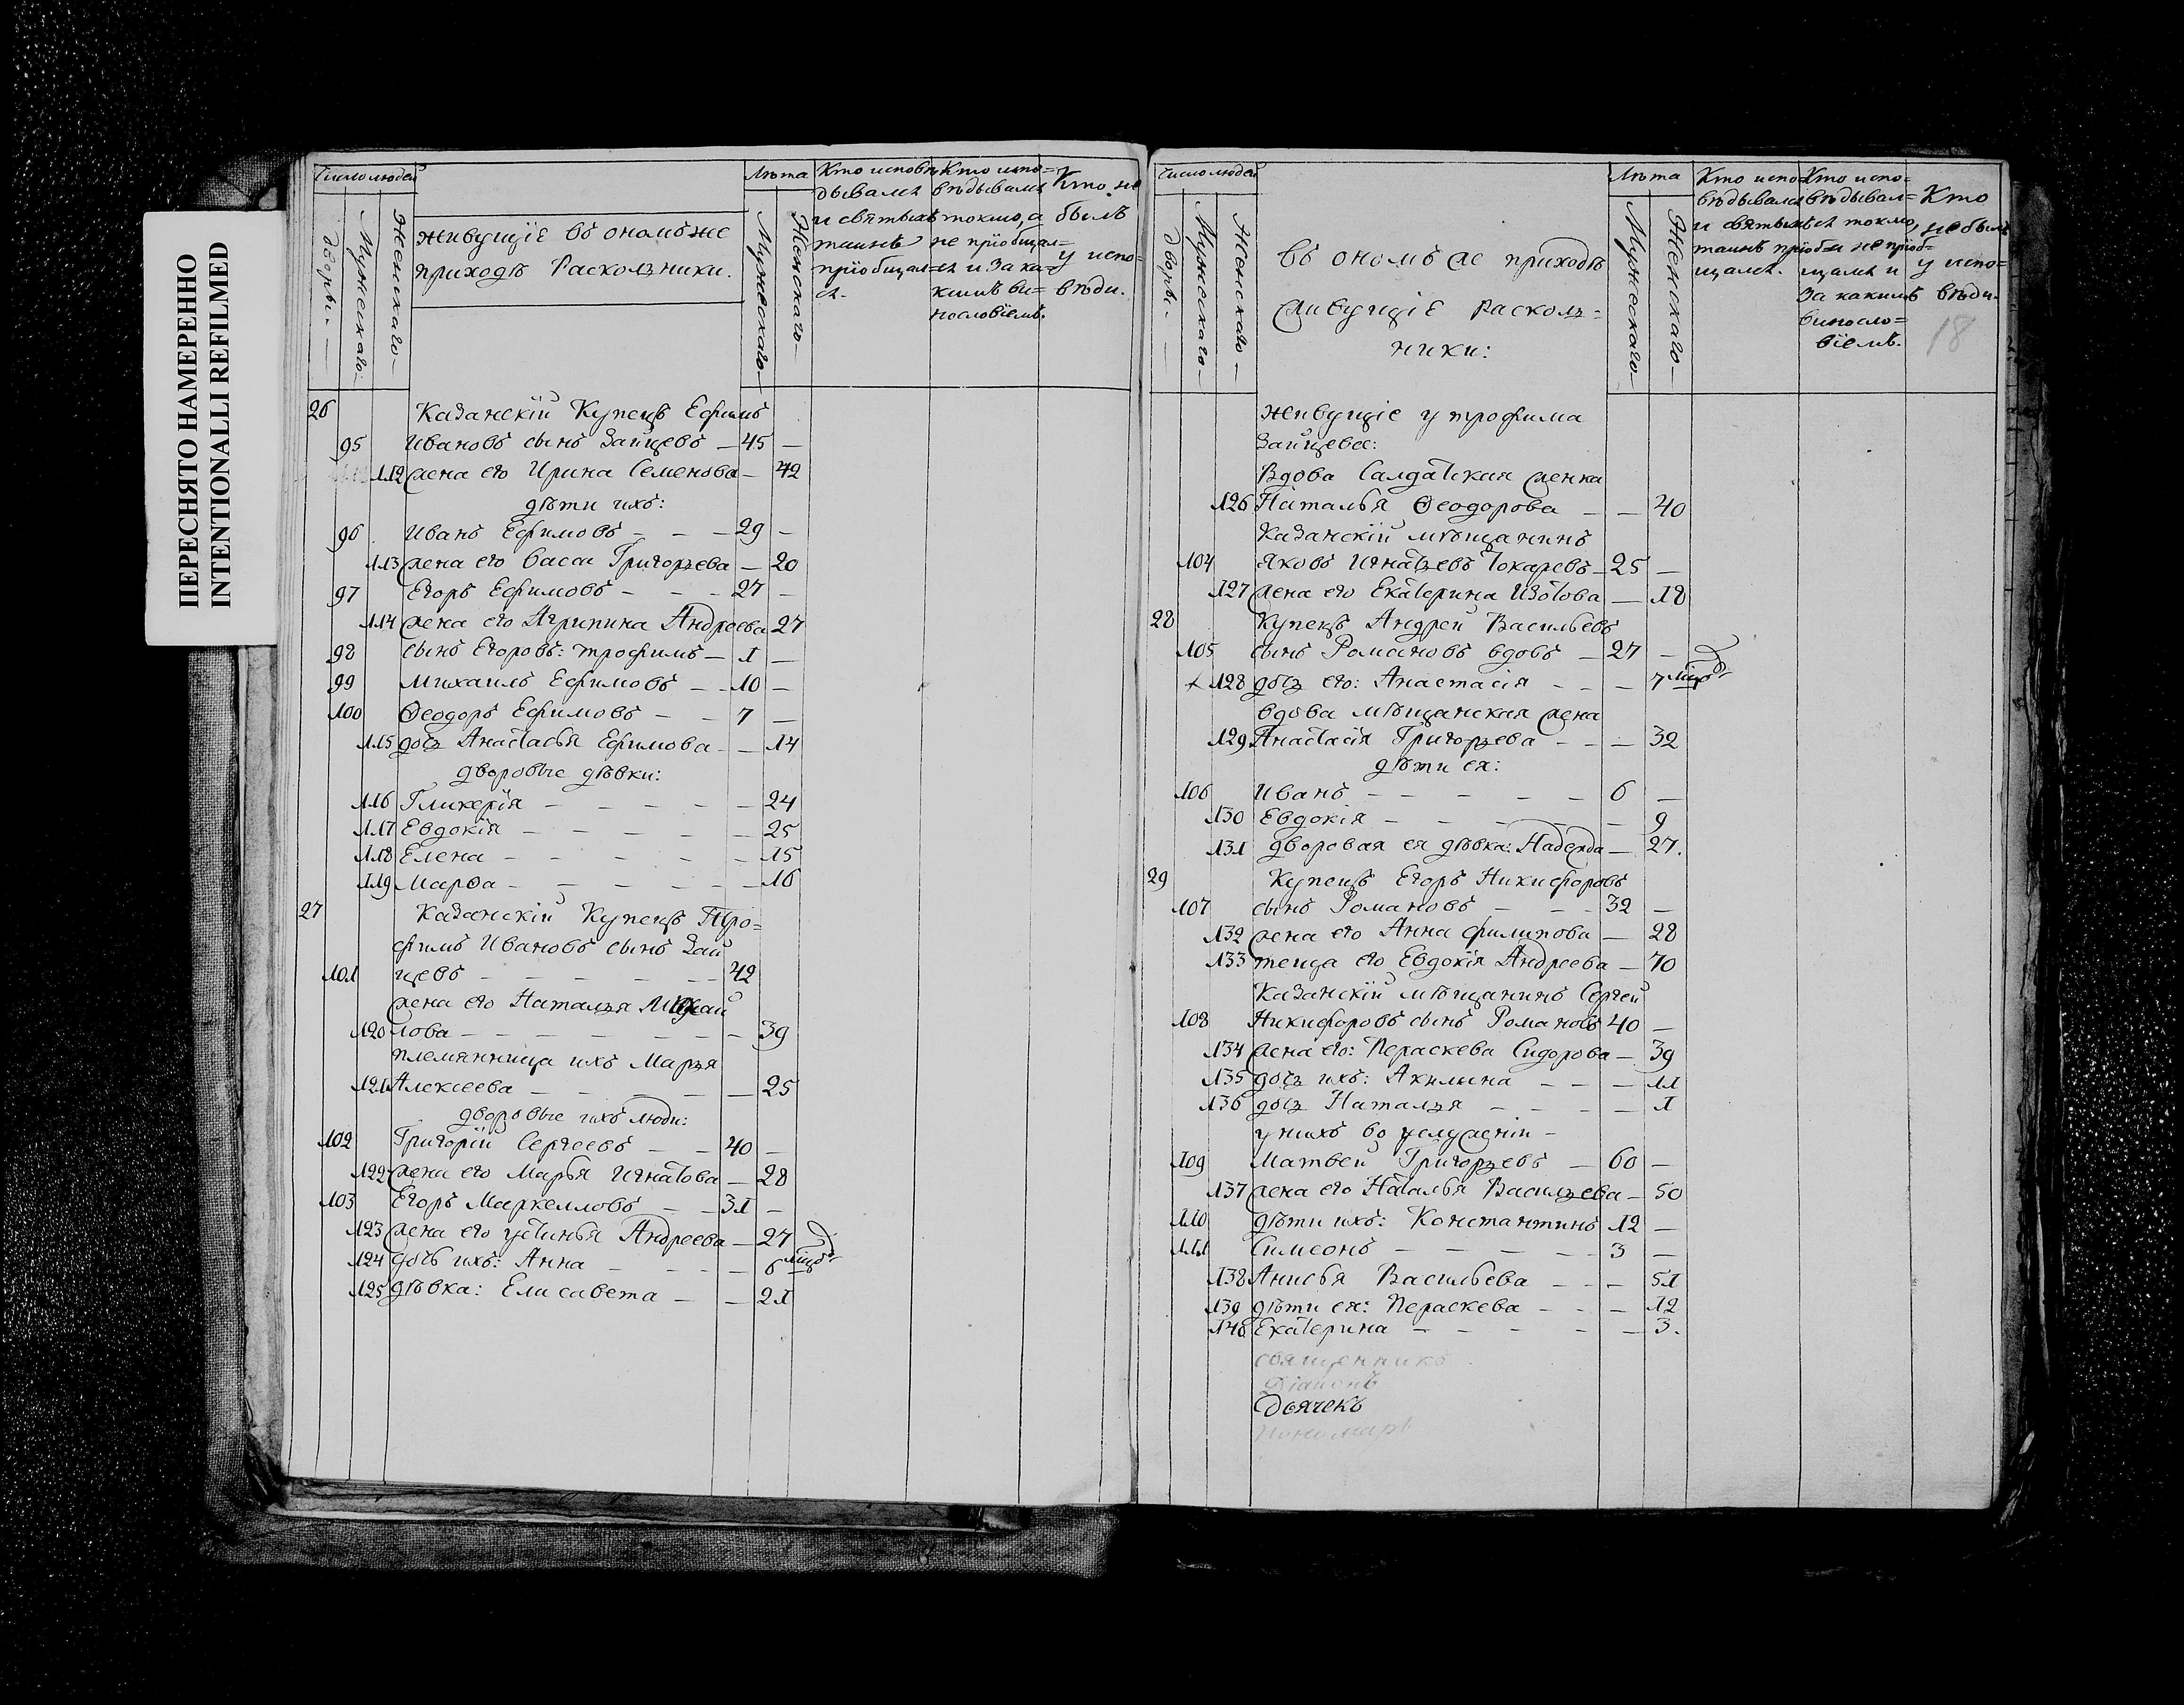 ПЕРЕСНЯТО НАМЕРЕННО
INTENTIONALLI REFILMED
Число людей
дворы.
Мужескаго
Женскаго
живущіе въ ономъ же
приходѣ Расколники.
Лѣта
Мужескаго
Женскаго
Кто исповѣ
дывался
и святыхъ
таинъ
пріобщал=
ся.
Кто испо=
вѣдывался
токмо, а
не пріобщал=
ся и за ка=
кимъ ви=
нословіемъ.
Кто не
былъ
у испо=
вѣди.
26 Казанскій Купецъ Ефимъ
95 Ивановъ сынъ Зайцевъ — 45 —
112 жена его Ирина Семенова — 42
дѣти ихъ:
96 Иванъ Ефимовъ — — — 29 —
113 жена его Васса Григорьева — 20
97 Егоръ Ефимовъ — — — 27 —
114 жена его Агрипина Андреева 27
98 сынъ Егоровъ: трофимъ — 1 —
99 Михаилъ Ефимовъ — — 10 —
100 Ѳеодоръ Ефимовъ — — 7 —
115 дочь Анастасья Ефимова — — 14
дворовые дѣвки:
116 Гликерія — — — — — 24
117 Евдокія — — — — — 25
118 Елена — — — — — 15
119 Марѳа — — — — — 16
27 Казанскій Купецъ Тро=
фимъ Ивановъ сынъ Зай
101 цевъ — — — — — 42
жена его Наталья Михай
120 лова — — — — — — 39
племянница ихъ Марья
121 Алексеева — — — — — 25
дворовые ихъ люди:
102 Григорій Сергеевъ — — 40 —
122 жена его Марья Игнатова — 28
103 Егоръ Маркелловъ — — 31 —
123 жена его устинья Андреева — 27
124 дочь ихъ: Анна — — — — 6
125 дѣвка: Елисавета — — 21
Число людей
дворы.
Мужескаго
Женскаго
Въ ономъ же приходѣ
живущіе раскол=
ники:
Лѣта
Мужескаго
Женскаго
Кто испо=
вѣдывался
и святыхъ
таинъ пріоб
щался.
Кто испо=
вѣдывал=
ся токмо,
а не пріоб=
щался и
за какимъ
винosло=
віемъ.
Кто
не былъ
у испо=
вѣди.
18
живущіе у трофима
Зайцева:
Вдова Салдатская женка
126 Наталья Ѳеодорова — — 40
Казанскій мѣщанинъ
104 Яковъ Игнатьевъ Токаревъ — 25 —
127 жена его Екатерина Изотова — 18
28 Купецъ Андрей Васильевъ
105 сынъ Романовъ вдовъ — 27 —
128 дочь его: Анастасія — — — 7
вдова мѣщанская жена
129 Анастасія Григорьева — — — 32
дѣти ея:
106 Иванъ — — — — — 6 —
130 Евдокія — — — — — 9
131 дворовая ея дѣвка: Надежда — 27.
29 Купецъ Егоръ Никифоровъ
107 сынъ Романовъ — — — 32 —
132 жена его Анна филипова — 28
133 теща его Евдокія Андреева — 70
Казанскій мѣщанинъ Сергей
108 Никифоровъ сынъ Романовъ 40 —
134 жена его: Параскева Сидорова — 39
135 дочь ихъ: Акилина — — — 11
136 дочь Наталья — — — — 1
у нихъ во услуженіи —
109 Матвей Григорьевъ — 60 —
137 жена его Наталья Васильева — 50
110 дѣти ихъ: Константинъ 12 —
111 Симеонъ — — — — — 3 —
138 Анисья Васильева — — — 51
139 дѣти ея: Параскева — — — 12
140 Екатерина — — — — — 3.
священникъ
Діаконъ
Дьячекъ
Пономарь